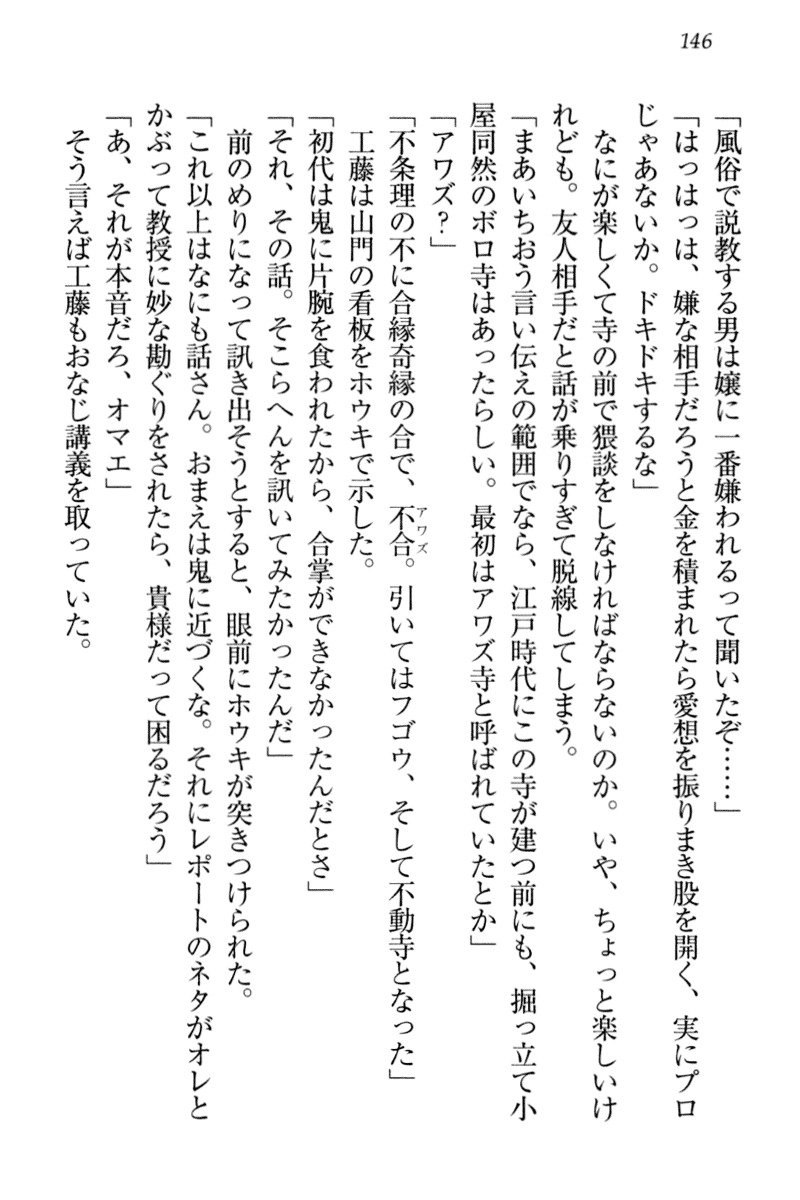 146
「風俗で説教する男は嬢に一番嫌われるって聞いたぞ……」
「はっはっは、嫌な相手だろうと金を積まれたら愛想を振りまき股を開く、実にプロ
じゃあないか。ドキドキするな」
なにが楽しくて寺の前で猥談をしなければならないのか。いや、ちょっと楽しいけ
れども。友人相手だと話が乗りすぎて脱線してしまう。
「まあいちおう言い伝えの範囲でなら、江戸時代にこの寺が建つ前にも、掘っ立て小
屋同然のボロ寺はあったらしい。最初はアワズ寺と呼ばれていたとか」
「アワズ？」
「不条理の不に合縁奇縁の合で、不合。引いてはフゴウ、そして不動寺となった」
アワズ
工藤は山門の看板をホウキで示した。
「初代は鬼に片腕を食われたから、合掌ができなかったんだとさ」
「それ、その話。そこらへんを訊いてみたかったんだ」
前のめりになって訊き出そうとすると、眼前にホウキが突きつけられた。
「これ以上はなにも話さん。おまえは鬼に近づくな。それにレポートのネタがオレと
かぶって教授に妙な勘ぐりをされたら、貴様だって困るだろう」
「あ、それが本音だろ、オマエ」
そう言えば工藤もおなじ講義を取っていた。